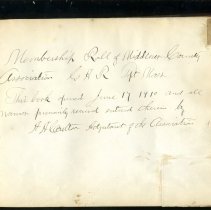 Membership Roll of Middlesex County
Association G A R
This book opened June 17 1910 and all
names previously record entered therein by
Adjutant of the Association